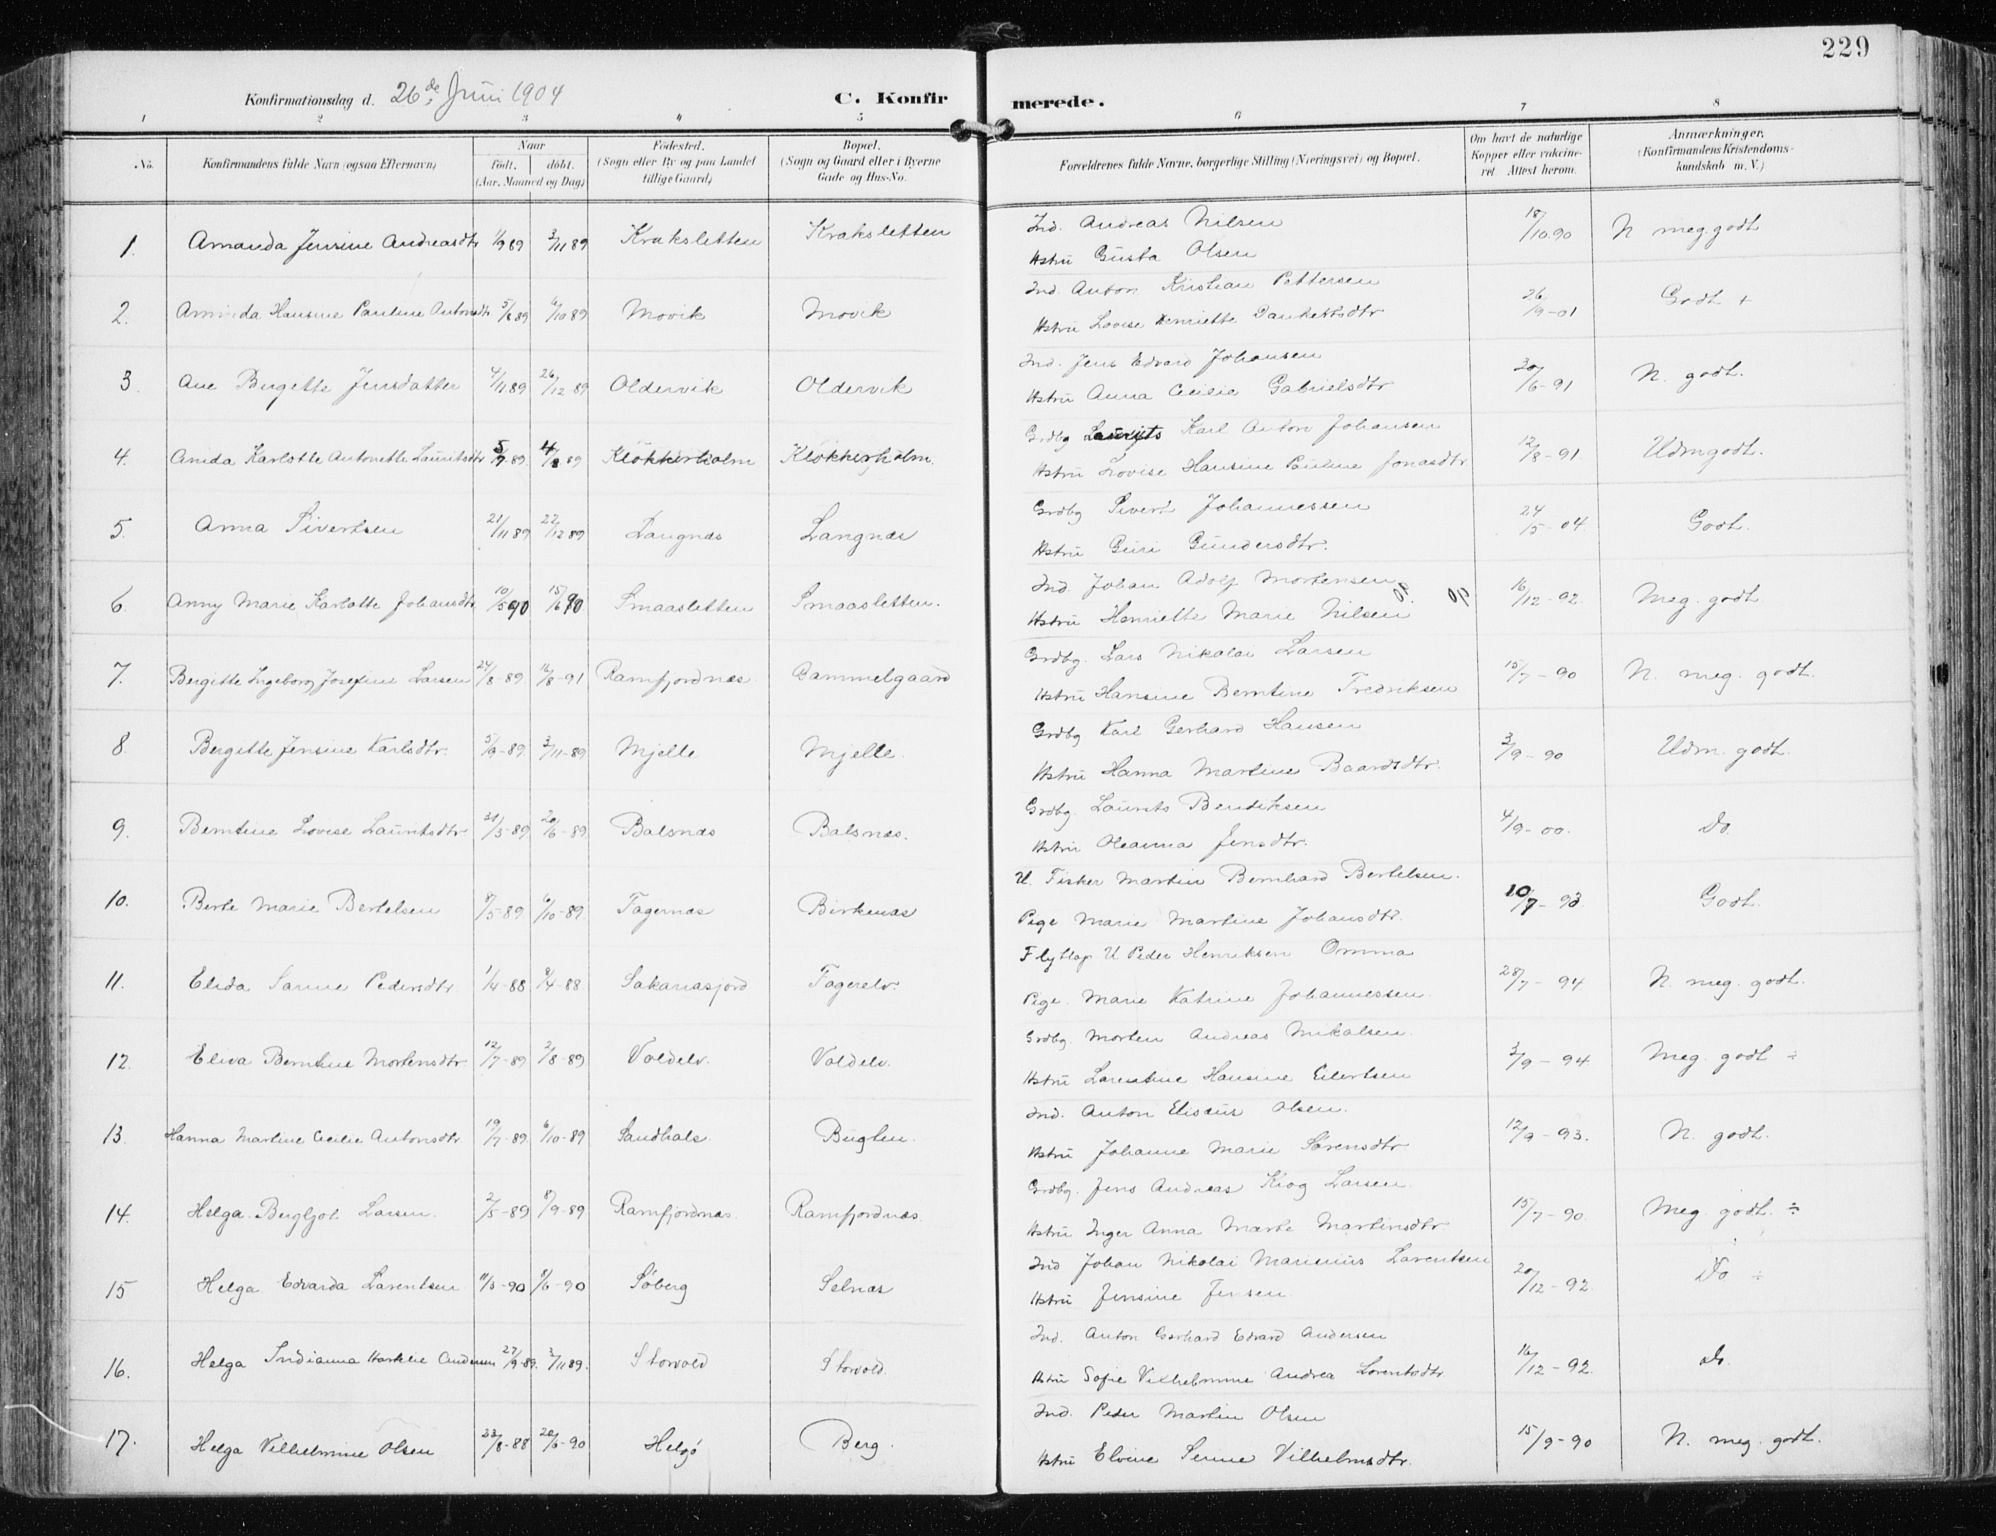 229
Konfirmationsdag d. 26de Juni 1904 C. Konfirmerede.
1 2 3 4 5 6 7 8
No. Konfirmandens fulde Navn (ogsaa Efternavn) Naar født. døbt. (Aar, Maaned og Dag) Fødested. (Sogn eller By og paa Landet tillige Gaard) Bopæl. (Sogn og Gaard eller i Byerne Gade og Hus-No. Forældrenes fulde Navne, borgerlige Stilling (Næringsvei) og Bopæl. Om havt de naturlige Kopper eller vakcineret Attest herom. Anmærkninger. (Konfirmandens Kristendomskundskab m. V.)
1. Amanda Jensine Andreasdtr 1/9 89 3/11 89 Kraksletten Kraksletten Ind. Andreas Nilsen 18/10 90 N meg. godt
Hstru Gusta Olsen
2. Hansine Pauline Antonsdtr 5/8 89 6/10 89 Movik Movik Ind. Anton Kristian Pettersen 26/9-01 Godt +
Hstru Lovise Henriette Dankertsdtr
3. Ane Bergitte Jensdatter 4/11 89 26/12 89 Oldervik Oldervik Ind. Jens Edvard Johansen 30/6-91 N. godt.
Hstru Anna Cecilie Gabrielsdtr
4. Anida Karlotte Antonette Lauritsdtr 5/7 89 4/8 89 Kløkkerholm Kløkkerholm. Grdbg Laurits Karl Anton Johansen 12/8-91 Udm godt.
Hstru Lovise Hansine Pauline Jonasdtr
5. Anna Sivertsen 21/11 89 22/12 89 Langnæs Langnæs Grdbg Sivert Johannessen 24/5-04. Godt.
Hstru Guri Gundersdtr.
6. Anny Marie Karlotte Johansdtr 10/5 90 15/6 90 Smaasletten Smaasletten. Ind. Johan Adolf Mortensen 16/12-92 Meg. godt.
Hstru Henriette Marie Nilsen
7. Bergitte Ingeborg Josefine Larsen 24/8-89 16/8-91 Ramfjordnæs Gammelgaard Grdbg. Lars Nikolai Larsen 15/7-90 N. meg. godt.
Hstru Hansine Berntine Fredriksen
8. Bergitte Jensine Karlsdtr. 5/9-89 3/11-89 Mjelle Mjelle. Grdbg Karl Gerhard Hansen 3/9-90 Udm. godt.
Hstru Hanna Martine Baardsdtr.
9. Berntine Lovise Lauritsdtr 31/3-89 20/6-89 Balsnæs Balsnæs. Grdbg. Laurits Bendiksen 4/9-00. Do.
Hstru Oleanna Jensdtr.
10. Berte Marie Bertelsen 8/5-89 6/10-89 Tagernæs Birkenæs U. Fisker Martin Bernhard Bertelsen. 10/7-93 Godt.
Pige Marie Martine Johansdtr.
11. Elida Sanne Pedersdtr. 1/4-88 9/4-88 Sakariasjord Tagerelv. Flytlap U Peder Henriksen Omma 28/7-94 N. meg. godt.
Pige. Marie Katrine Johannessen.
12. Eliva Berntine Mortensdtr. 12/7-89 2/8-89 Voldelv. Voldelv. Grdbg. Morten Andreas Mikalsen. 3/9-94 Meg. godt ÷
Hstru Larentine Hansine Eilertsen
13. Hanna Martine Cecilie Antonsdtr 19/7-89 6/10-89 Sandhals Bugten. Ind. Anton Elisæus Olsen. 12/9-93. N. godt.
Hstru Johanne Marie Sørensdtr
14. Helga Bergljot Larsen. 2/5-89 8/9-89 Ramfjordnæs. Ramfjordnæs. Grdbg. Jens Andreas Krog Larsen. 15/7-90. Meg. godt. ÷
Hstru Inger Anna Marte Martinsdtr.
15 Helga Edvarda Larentsen 11/3-90 8/6-90 Søberg Selnæs Ind Johan Nikolai Marinius Larentsen 20/12-92 Do ÷
Hstru Jensine Jensen
16. Helga Indianna Andersen 27/9-89. 3/11 89. Storvold Storvold. Ind. Anton Gerhard Edvard Andersen 16/12-92. Do.
Hstru Sofie Vilhelmine Andrea Lorentsdtr.
17. Helga Vilhelmine Olsen 23/8-88 20/6-90 Helgø Berg. Ind. Peder Martin Olsen 15/9-90 N. meg. godt.
Hstru Elvine Senne Vilhelmsdtr.